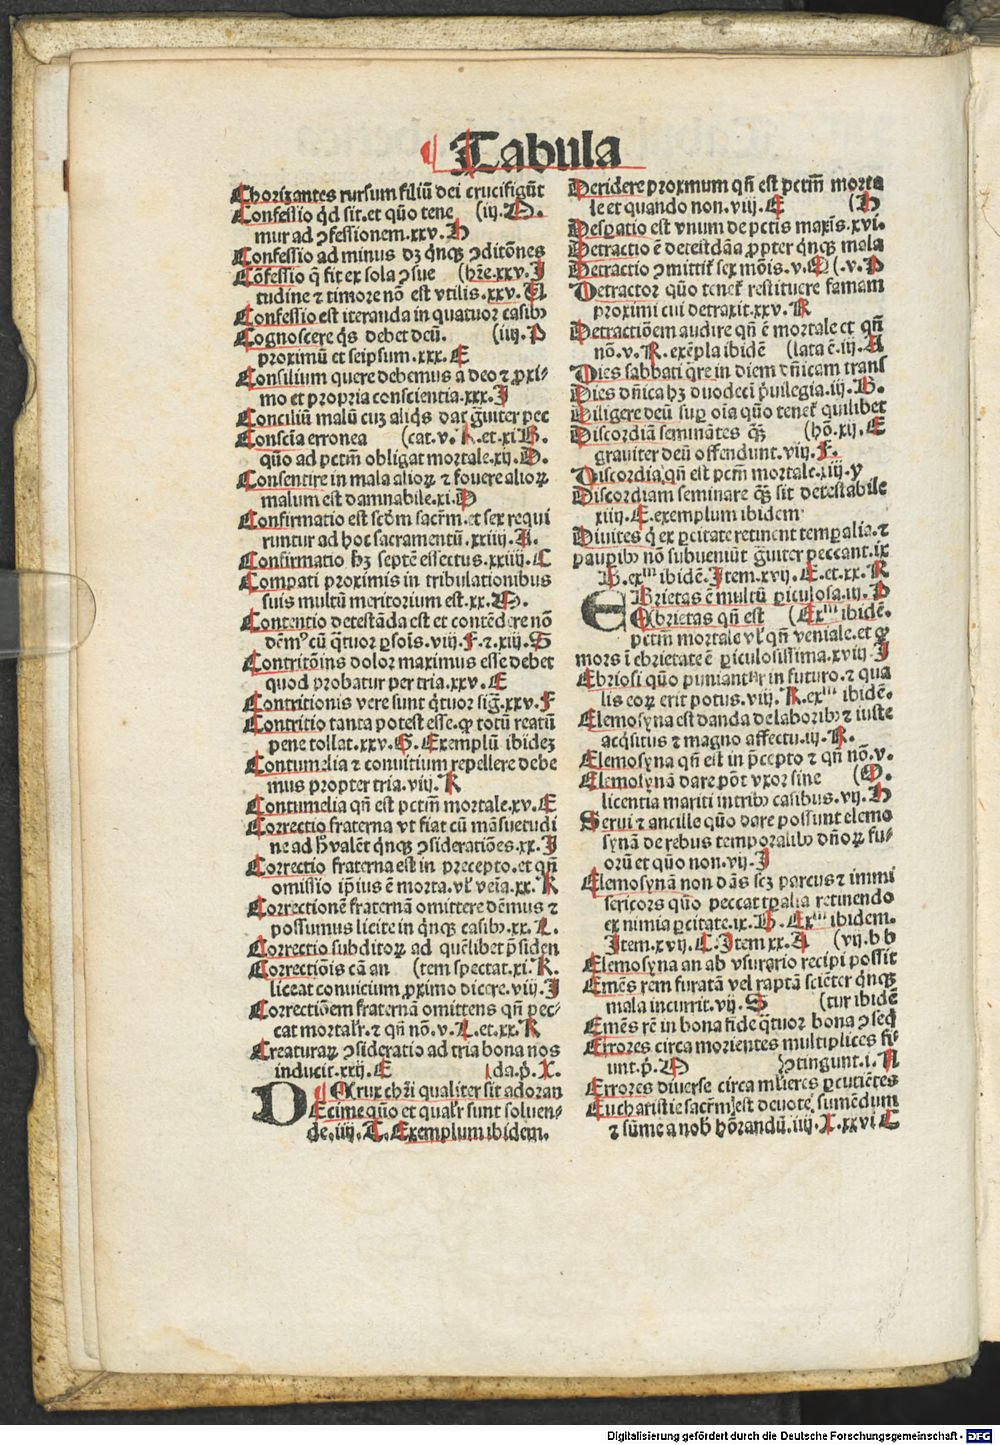 Tabula
Chorizantes rursum filiū dei crucifigūt
Confessio qd sit.et quō tene (iij.D.
mur ad ꝯfessionem.xxv.H
Confessio ad minus dꝫ qnqꝫ ꝯditōnes
Cōfessio q̄ fit ex sola ꝯsue (hr̄e.xxv.I
tudine ⁊ timore nō est vtilis.xxv.
Confessio est iteranda in quatuor casibꝰ
Cognoscere q̇s debet deū. (iiij.P
proximū et seipsum.xxx.E
Consilium quere debemus a deo ⁊ ꝓxi-
mo et propria conscientia.xxx.I
Conciliū malū cuꝫ aliq̇s dat g̃uiter pec
Consciā erronea (cat.v. .et.xi.B.
quō ad pctm̄ obligat mortale.xij.D.
Consentire in mala alioꝝ ⁊ fouere alioꝝ
malum est damnabile.xi.
Confirmatio est scd̄m sacrm̄.et sex requi
runtur ad hoc sacramentū.xxiiij.A.
Confirmatio hꝫ septē effectus.xxiiij.C
Compati proximis in tribulationibus
suis multū meritorium est.xx.
Contentio detestāda est et contēdere nō
dēm⁹ cū q̄tuor ꝑsōis.viij.F.⁊.xiij.S
Contritōins dolor maximus esse debet
quod probatur per tria.xxv.E
Contritionis vere sunt q̇tuor sig̃.xxv.F
Contritio tanta potest esse.ꝙ totū reatū
pene tollat.xxv.G.Exemplū ibideꝫ
Contumelia ⁊ conuitium repellere debe
mus propter tria.viij.K
Contumelia qn̄ est pctm̄ mortale.xv.E
Correctio fraterna vt fiat cū māsuetudi
ne ad h̄ valēt q̇nqꝫ ꝯsideratiōes.xx.I
Correctio fraterna est in precepto.et qn̄
omissio ip̄ius ē morta.vl̓ veīa.xx.K
Correctionē fraternā omittere dēmus ⁊
possumus licite in q̇nqꝫ casibꝰ.xx.L.
Correctio subditoꝝ ad quēlibet p̄siden
Correctiōis cā an (tem spectat.xi.K.
liceat conuicium ꝓximo dicere.viij.I
Correctiōem fraternā omittens qn̄ pec-
cat mortal̓r.⁊ qn̄ nō.v.L.et.xx.K
Creaturaꝝ ꝯsideratio ad tria bona nos
inducit.xxij.E (da.p̊.X.
Crux chr̄i qualiter sit adoran
DEcime quō et qual̓r sunt soluen-
de.iiij.T.Exemplum ibidem.
Deridere proxmum qn̄ est pctm̄ morta
le et quando non.viij.E (H
Desꝑatio est vnum de pctis maxīs.xvi.
Detractio ē detestdāa ꝓpter q̇nqꝫ mala
Detractio ꝯmittit̄ sex mōis.v.O (.v.P
Detractor quō tenet̄ restituere famam
proximi cui detraxit.xxv.R
Detractiōem audire qn̄ ē mortale et qn̄
nō.v.R.exēpla ibidē (lata ē.iij.A
Dies sabbati q̄re in diem dn̄icam trans
Dies dn̄ica hꝫ duodeci p̓uilegia.iij.B.
Diligere deū suꝑ oīa quō tenet̄ quilibet
Discordiā seminātes q̄ꝫ (hō.xij.E
grauiter deū offendunt.viij.F.
Discordia qn̄ est pctm̄ mortale.xiij.y
Discordiam seminare q̄ꝫ sit detestabile
xiiij.E.exemplum ibidem
Diuites q̇ ex ꝑcitate retinent temꝑalia.⁊
pauꝑibꝰ nō subueniūt g̃uiter peccant.ix
B.exᵐ ibidē.Item.xvij.E.et.xx.K
EBrietas ē multū ꝑiculosa.iij.P
Ebrietas qn̄ est (Exᵐ ibidē.
pctm̄ mortale vl̓ qn̄ veniale.et ꝙ
mors ī ebrietate ē ꝑiculosissima.xviij.I
Ebriosi quō puniantur in futuro.⁊ qua
lis eoꝝ erit potus.viij.K.exᵐ ibidē.
Elemosyna est danda de laboribꝰ ⁊ iuste
acq̇situs ⁊ magno affectu.iij.R.
Elemosyna qn̄ est in p̄cepto ⁊ qn̄ nō.v.
Elemosynā dare pōt vxor sine (O.
licentia mariti in tribꝰ casibus.vij.H
Serui ⁊ ancille quō dare possunt elemo
synā de rebus temporalibꝰ dn̄oꝝ su-
orū et quō non.vij.I
Elemosynā non dās scꝫ parcus ⁊ immi
sericors quō peccat tꝑalia retinendo
ex nimia ꝑcitate.ix.B.Exᵐ ibidem.
Item.xvij.C.Item xx.A (vij.b b
Elemosyna an ab vsurario recipi possit
Emēs rem furatā vel raptā sciēter q̇nqꝫ
mala incurrit.vij.S (tur ibidē
Emēs rē in bona fide q̄tuor bona ꝯseq̇
Errores circa morientes multiplices fi
unt.p̊. ꝯtingunt.i.
Errores diuerse circa mlieres ꝑcutiētes
Eucharistie sacrm̄ est deuote sumēdum
⁊ sūme a nob̄ hōrandū.iiij.X.xxvi C
Digitalisierung gefördert durch die Deutsche Forschungsgemeinschaft - DFG